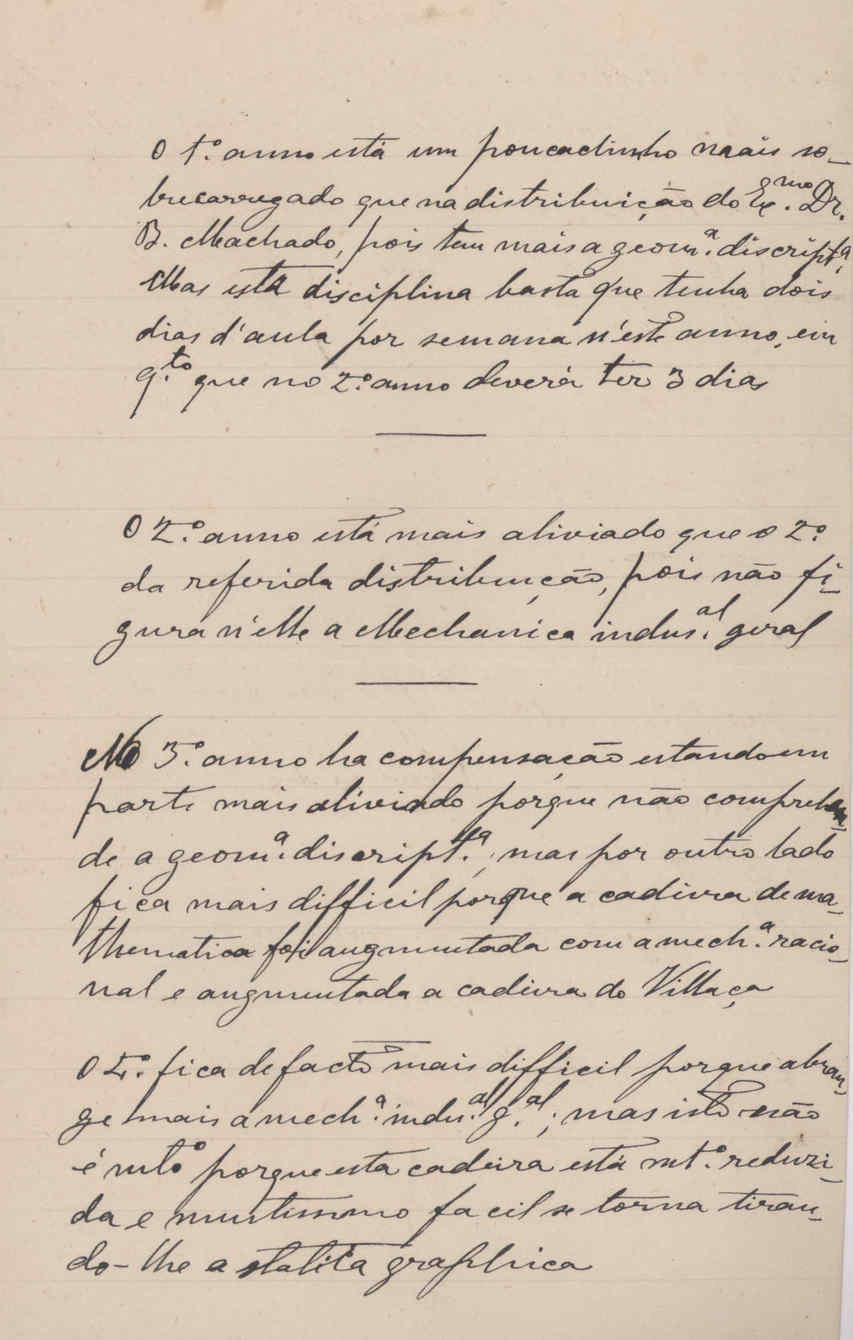 O 1.º anno está um poucadinho mais so-
brecarregado que na distribuição do Ex.mo Dr.
B. Machado, pois tem mais a geom.ª discript.ª,
Mas esta disciplina basta que tenha dois
dias d'aula por semana n'este anno, em
q.to que no 2.º anno deverá ter 3 dias
O 2.º anno está mais aliviado que o 2.º
da referida distribuição, pois não fi-
gura n'elle a Mechanica indus.al geral
No 3.º anno ha compensação estando em
parte mais aliviado porque não comprehen-
de a geom.ª discript.ª, mas por outro lado
fica mais difficil porque a cadeira de ma-
thematica foi augmentada com a mech.ª racio-
nal e augmentada a cadeira do Villaça
O 4.º fica de facto mais difficil porque abran-
ge mais a mech.ª indus.al g.al; mas isto não
é mto porque esta cadeira está mt.º reduzi-
da e muitissimo facil se torna tiran-
do-lhe a statica graphica